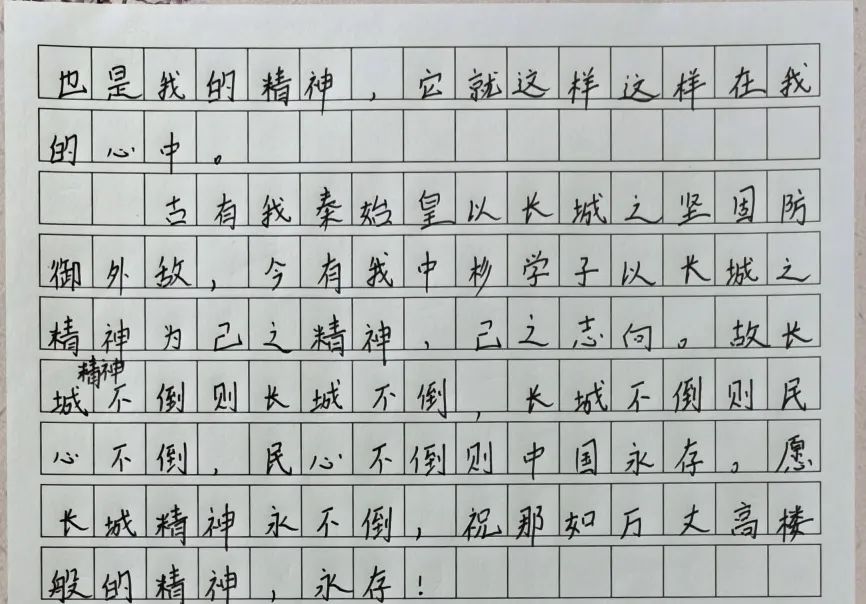 也是我的精神，它就这样这样在我
的心中。
古有我秦始皇以长城之坚固防
御外敌，今有我中杉学子以长城之
精神为己之精神，己之志向。故长
精神
城不倒则长城不倒，长城不倒则民
心不倒，民心不倒则中国永存。愿
长城精神永不倒，祝那如万丈高楼
般的精神，永存！